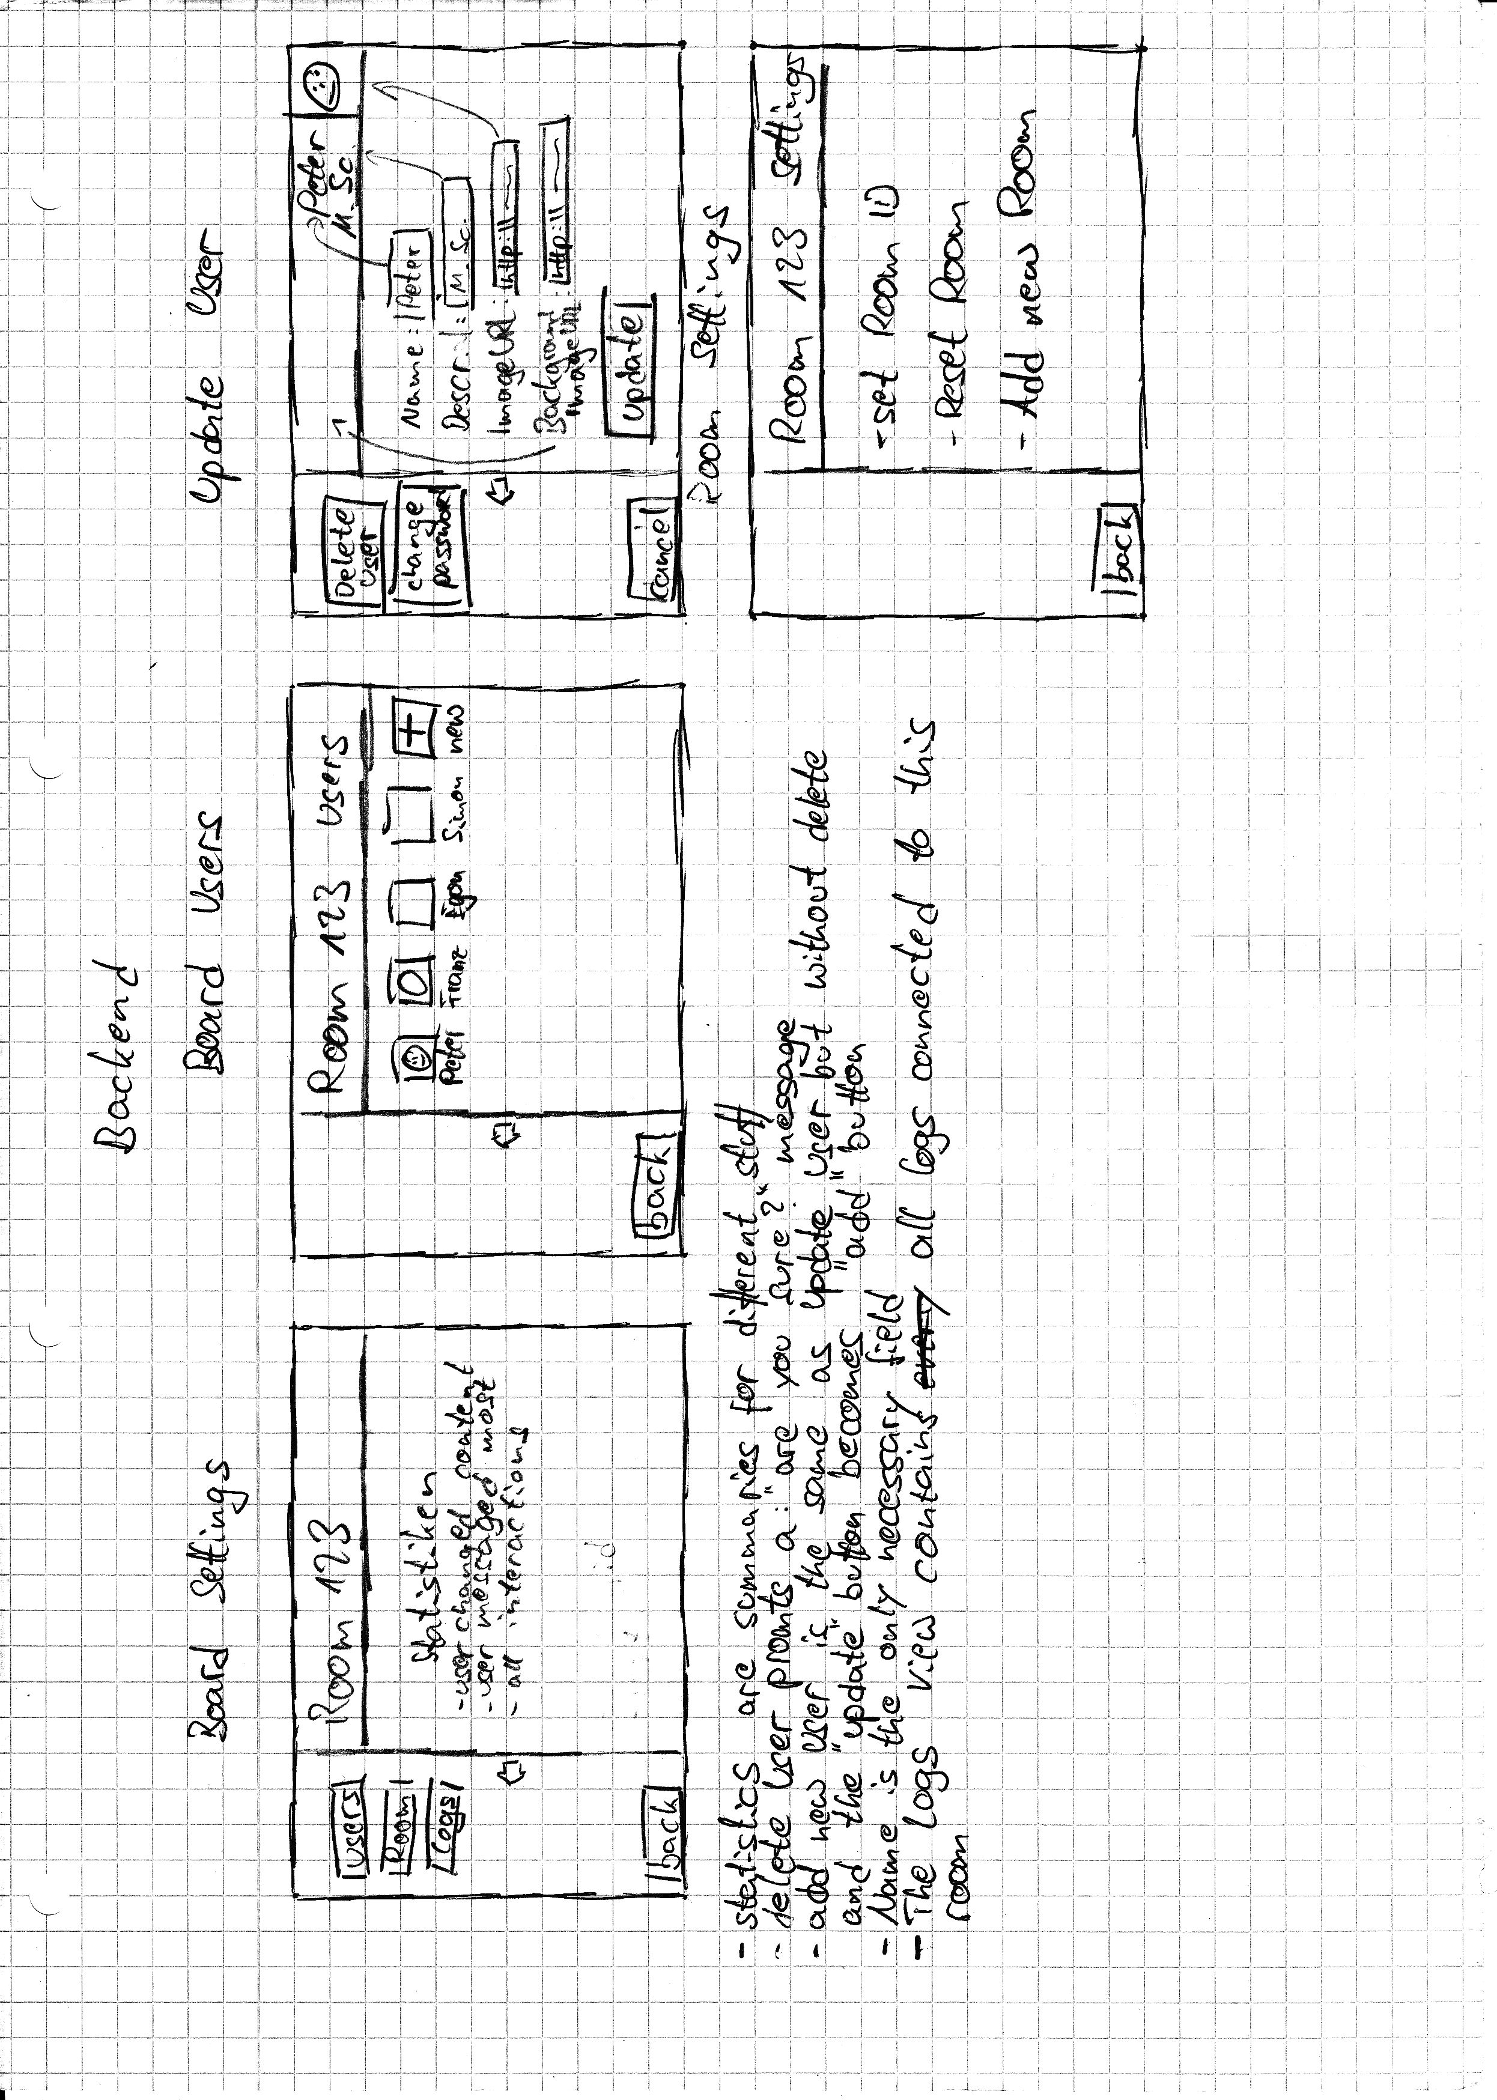 Backend
Board Settings
Room 123
Users
Room
Logs
Statistiken
- user changed content
- user messaged most
- all interactions
back
Board Users
Room 123 users
Peter Franz Egon Simon new
back
Update User
Delete
User
change
password
Peter
M. Sc.
Name: Peter
Descr.: M. Sc.
Image URL: http://
Background
Image URL: http://
Update
cancel
Room Settings
Room 123 settings
- set Room ID
- Reset Room
- Add new Room
back
- statistics are summaries for different stuff
- delete user promts a: "are you sure?" message
- add new user is the same as update user but without delete
and the "update" button becomes "add" button
- Name is the only necessary field
- The Logs view contains every all logs connected to this
room